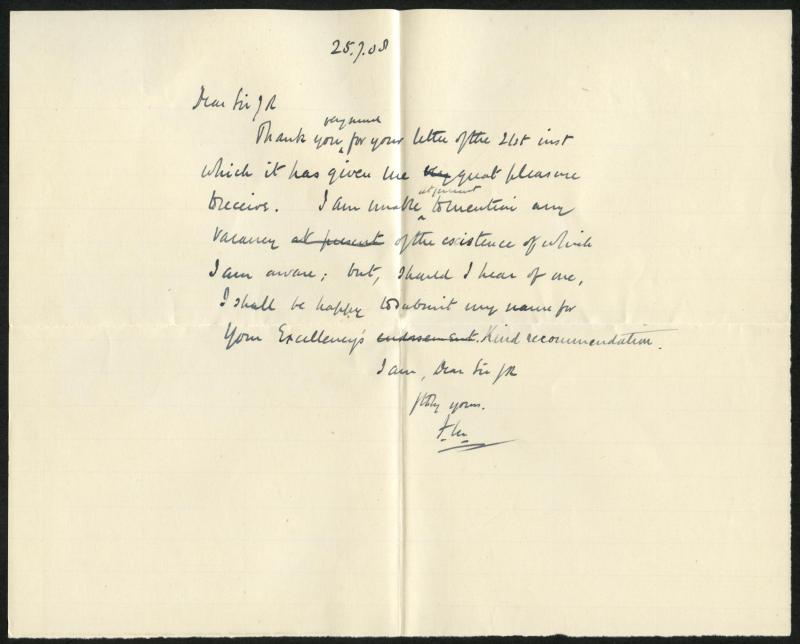 25.7.08
Dear Sir J R
very much
Thank you ‸ for your letter of the 21st inst
which it has given me very great pleasure
at present
to receive. I am unable ‸ to mention any
vacancy at present of the existence of which
I am aware; but, should I hear of one,
I shall be happy to submit my name for
Your Excellency's endorsement. Kind recommendation.
I am, Dear Sir J R
yours.